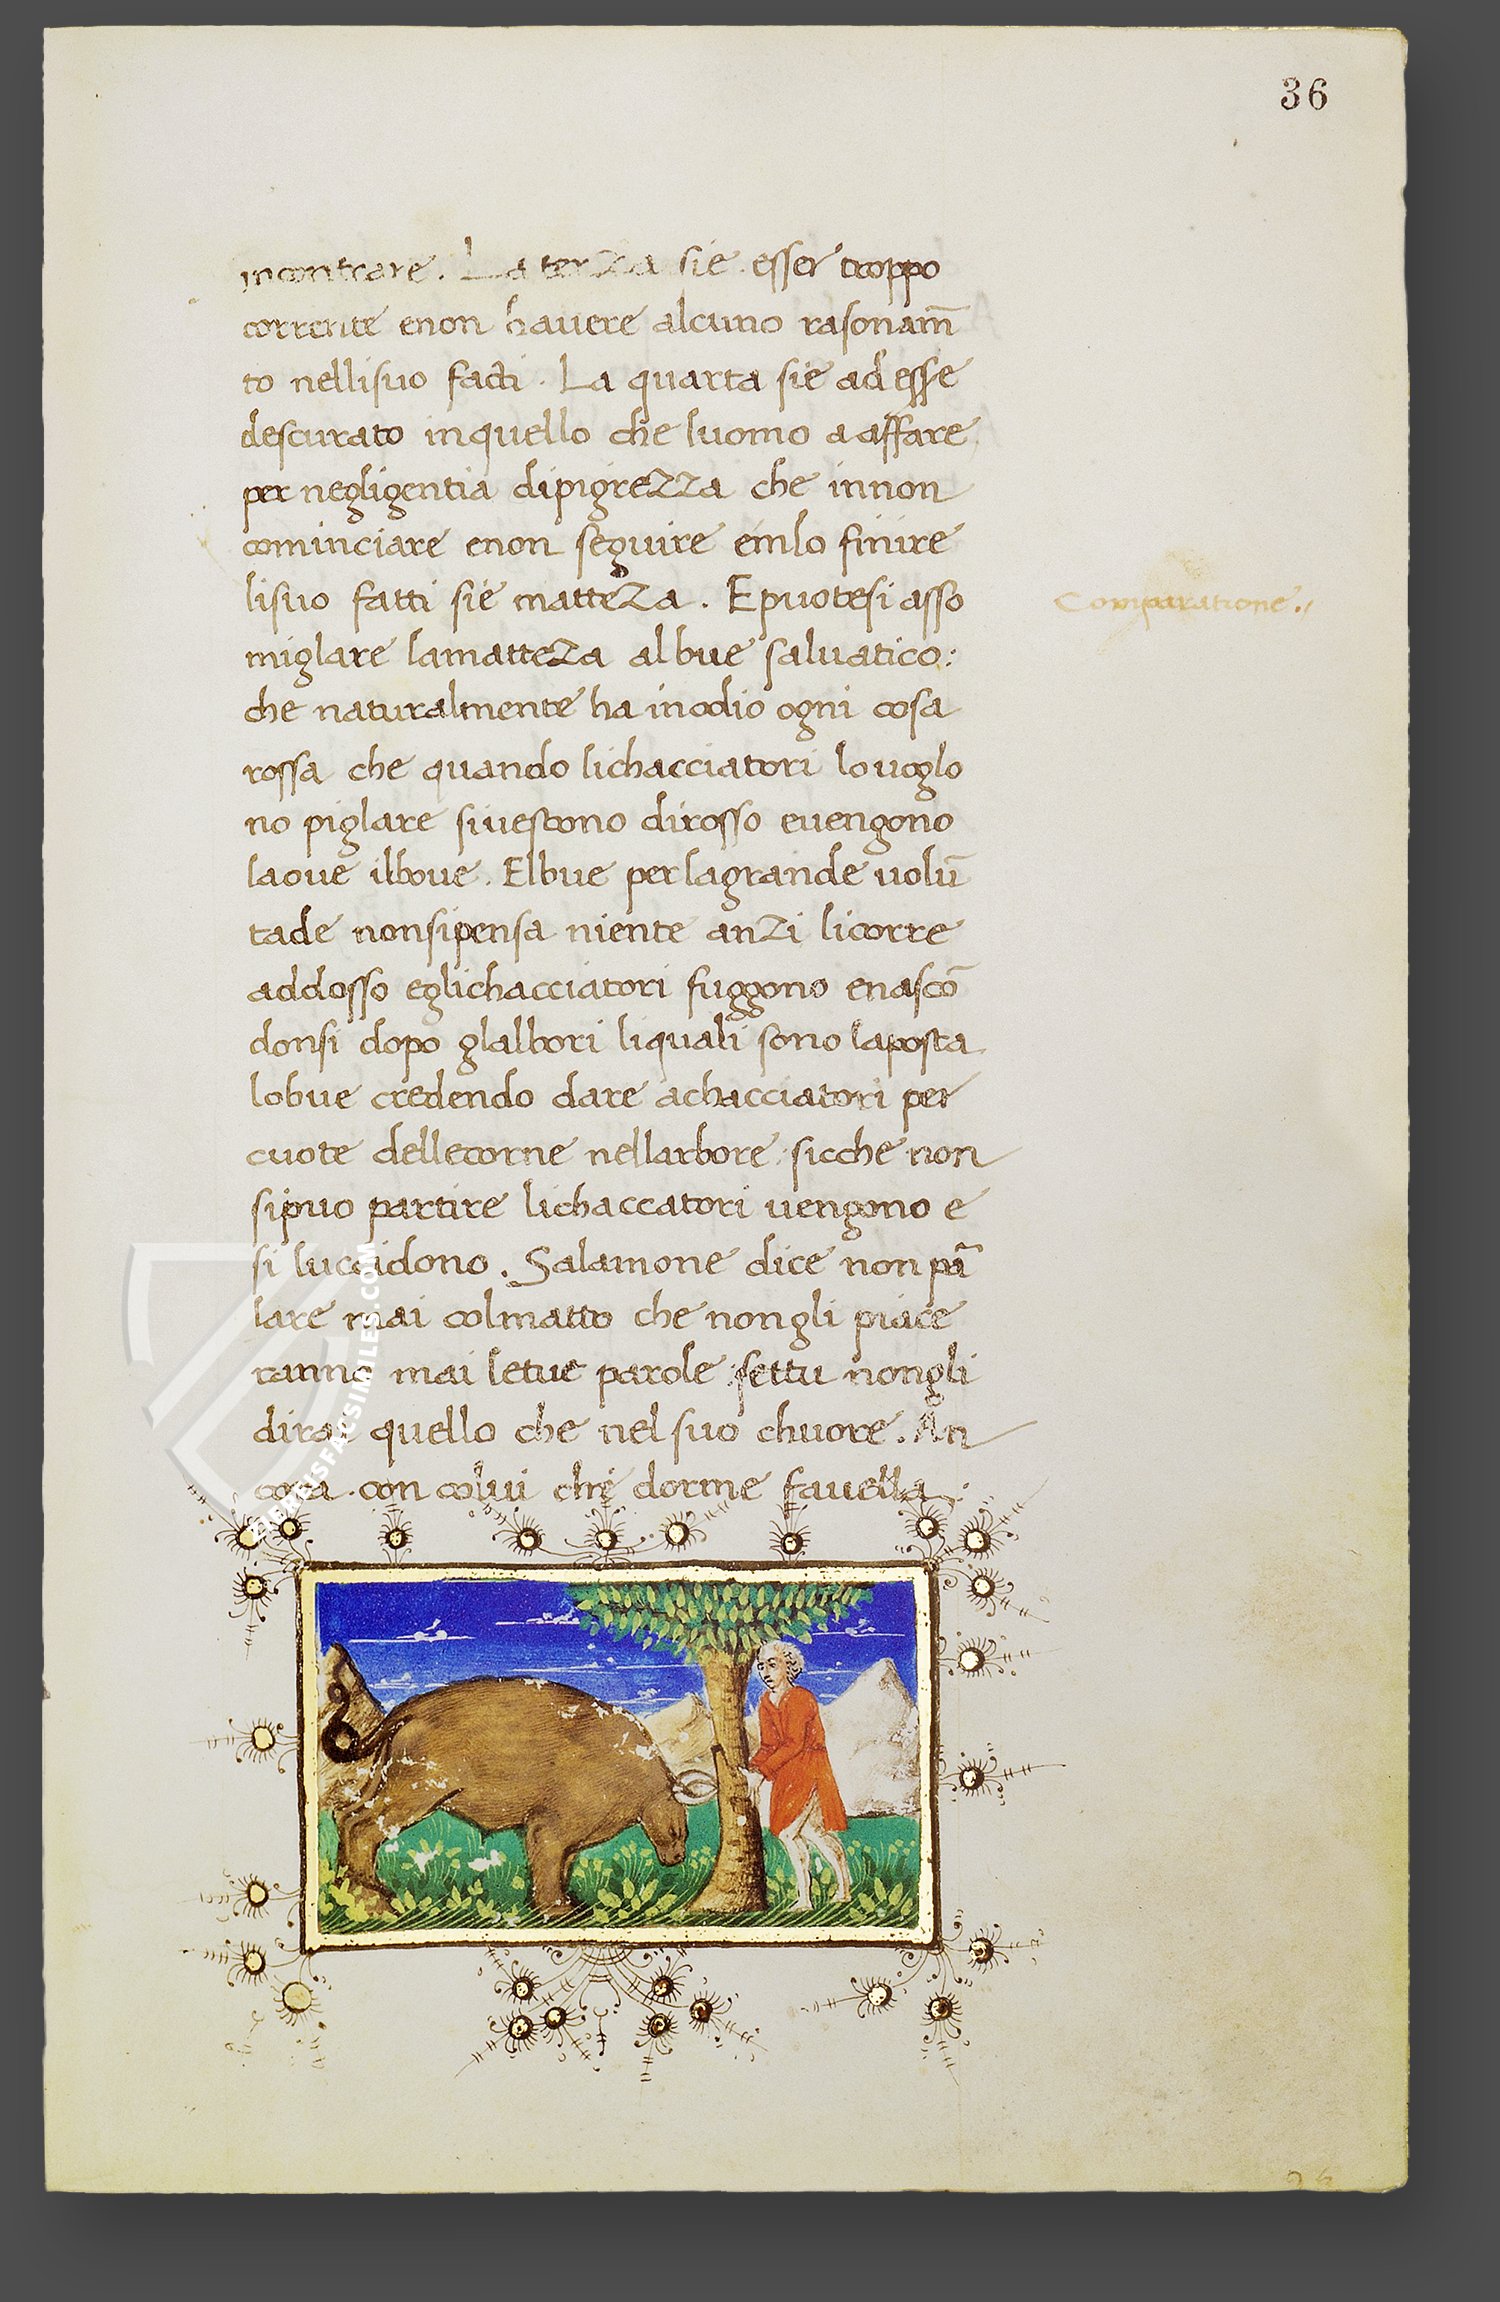 36
incontrare. La terza sie esser troppo
corrente enon havere alcuno rasonam̄
to nellisuo facti. La quarta sie ad esse
descurato inquello che luomo a affare
per negligentia dipigrezza che innon
cominciare enon seguire einlo finire
lisuo fatti sie matteza. Epuotesi asso
miglare lamatteza al bue salvatico:
che naturalmente ha inodio ogni cosa
rossa che quando lichacciatori lo voglo
no piglare sivestono dirosso evengono
laove ilbove. Elbue perlagrande volū
tade nonsipensa niente anzi licorre
addosso eglichacciatori fuggono enascō
donsi dopo glalbori liquali sono laposta
lobue credendo dare achacciatori per
cuote dellecorne nellarbore: sicche non
sipuo partire lichaccatori vengono e
si luccidono. Salamone dice non pā
lare mai colmatto che nongli piace
ranno mai letue parole: settu nongli
dirai quello che nel suo chuore. An
cora. con colui che dorme favella:
Comparatione.
ZIEREISFACSIMILES.COM